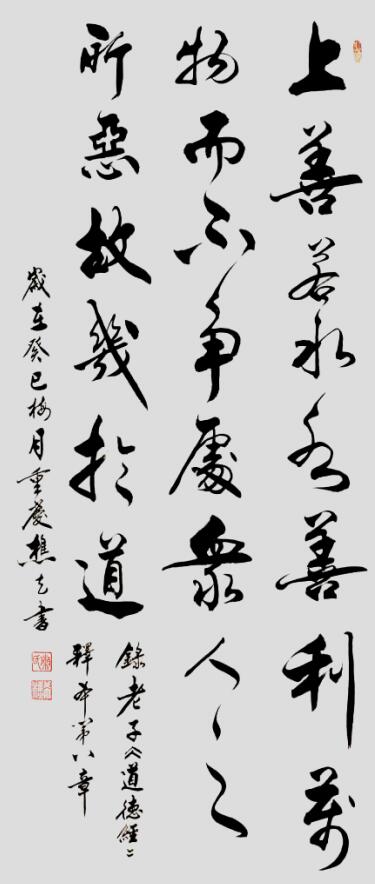 上善若水水善利萬
物而不争處衆人之
所惡故幾於道
錄老子《道德經》
釋本第八章
歲在癸巳梅月重慶樵書